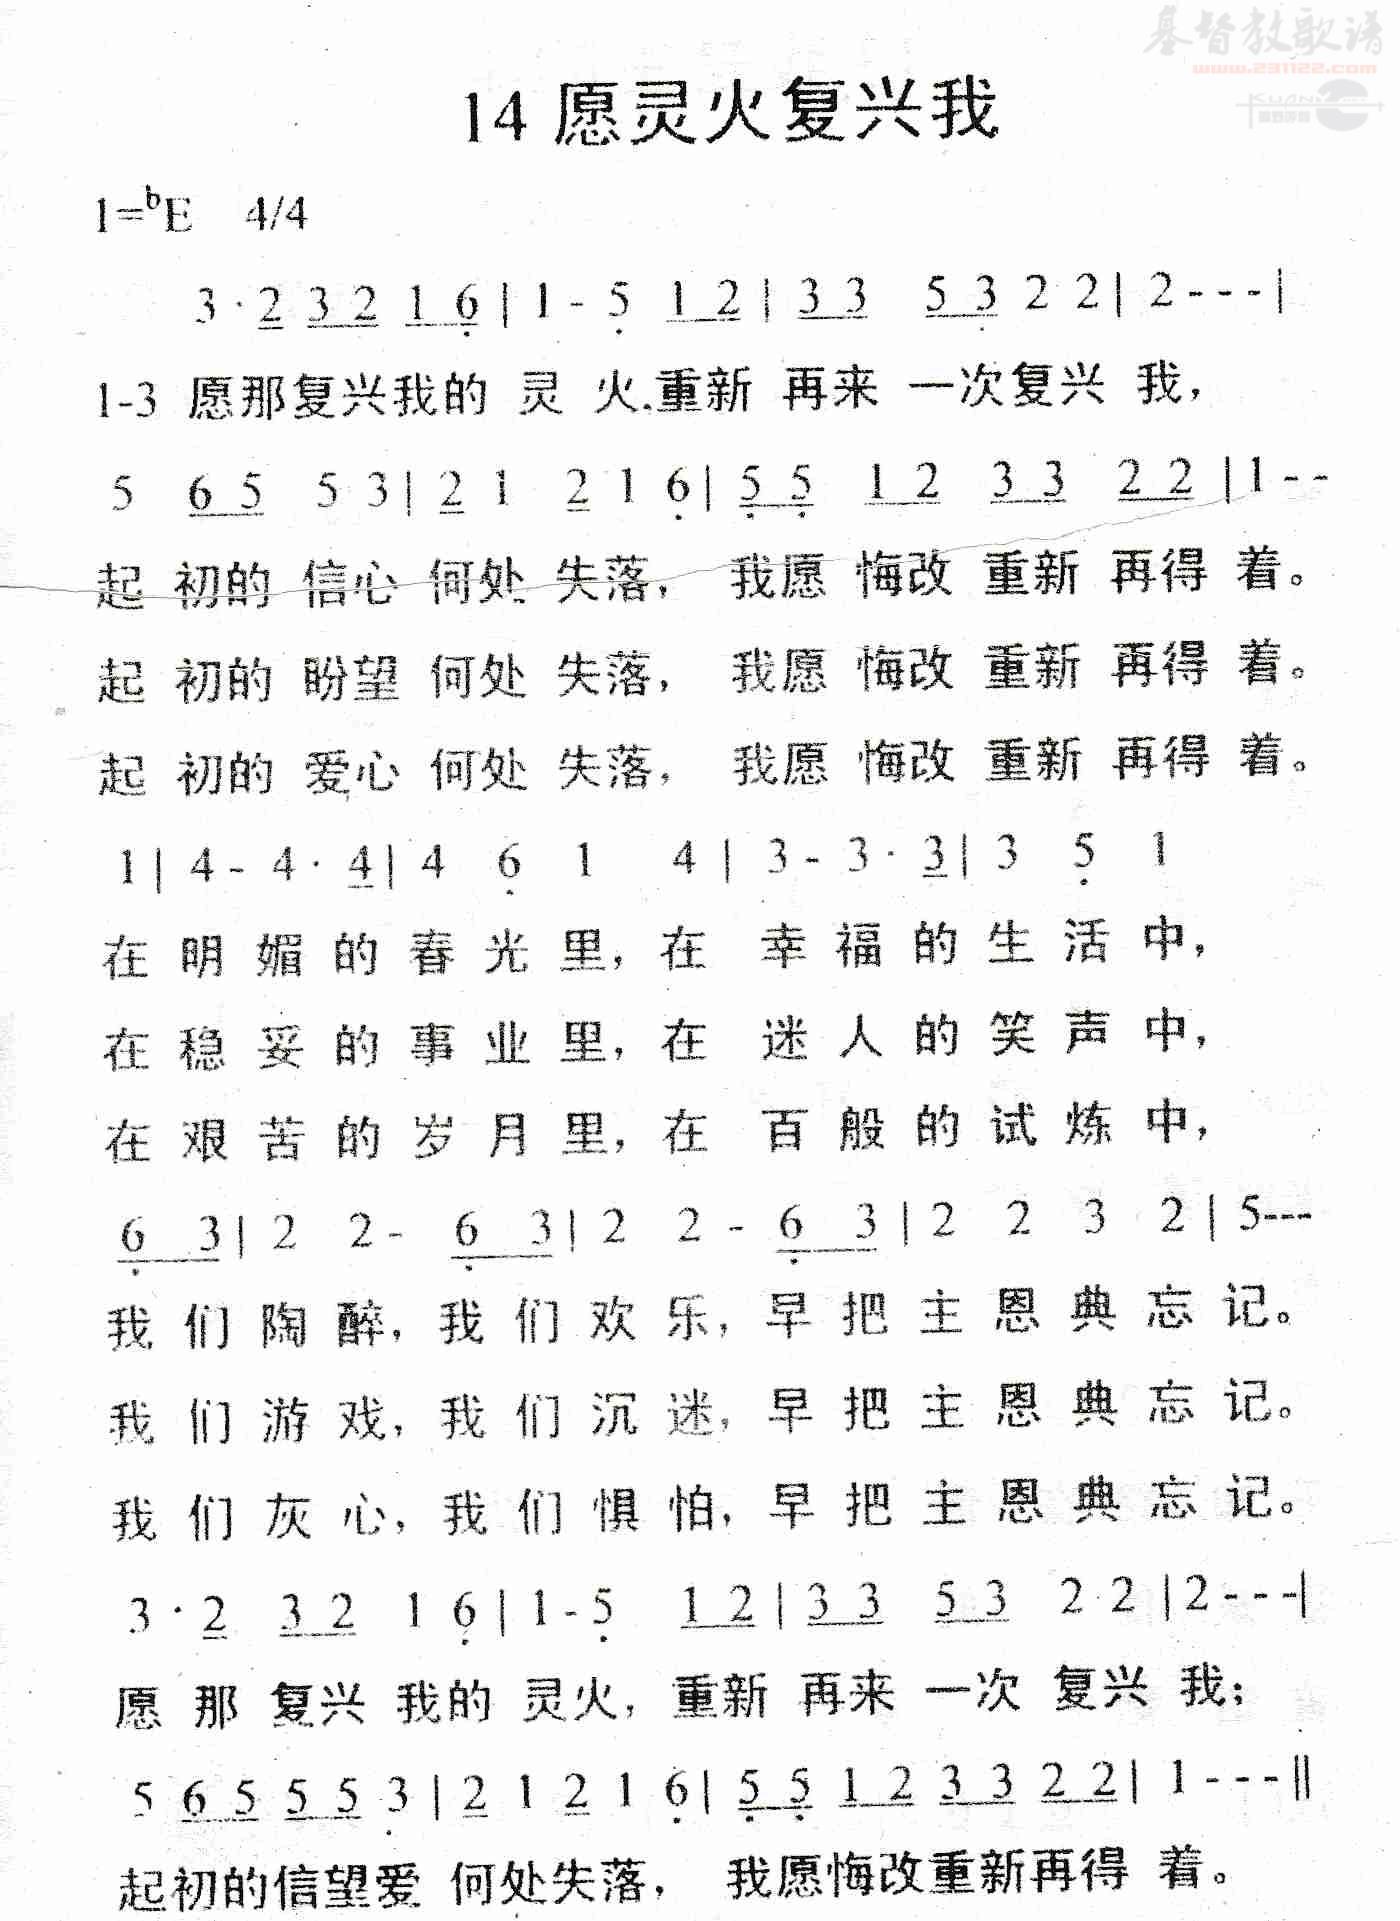 基督教歌谱
www.231122.com
14 愿灵火复兴我
1=bE 4/4
3 · 2 3 2 1 6 | 1 - 5 1 2 | 3 3 5 3 2 2 | 2 - - - |
1-3 愿那复兴我的 灵 火.重新 再来 一次复兴 我，
5 6 5 5 3 | 2 1 2 1 6 | 5 5 1 2 3 3 2 2 | 1 - -
起 初的 信心 何处 失落， 我愿 悔改 重新 再得 着。
起 初的 盼望 何处 失落， 我愿 悔改 重新 再得 着。
起 初的 爱心 何处 失落， 我愿 悔改 重新 再得 着。
1 | 4 - 4 · 4 | 4 6 1 4 | 3 - 3 · 3 | 3 5 1
在 明 媚 的 春 光 里，在 幸 福 的 生 活 中，
在 稳 妥 的 事 业 里，在 迷 人 的 笑 声 中，
在 艰 苦 的 岁 月 里，在 百 般 的 试 炼 中，
6 3 | 2 2 - 6 3 | 2 2 - 6 3 | 2 2 3 2 | 5---
我 们 陶 醉，我 们 欢 乐，早 把 主 恩 典 忘 记。
我 们 游 戏，我 们 沉 迷，早 把 主 恩 典 忘 记。
我 们 灰 心，我 们 惧 怕，早 把 主 恩 典 忘 记。
3 · 2 3 2 1 6 | 1 - 5 1 2 | 3 3 5 3 2 2 | 2 - - - |
愿 那 复兴 我的 灵火，重新 再来 一次 复兴 我；
5 6 5 5 5 3 | 2 1 2 1 6 | 5 5 1 2 3 3 2 2 | 1 - - - ||
起初的信望爱 何处失落， 我愿悔改重新再得 着。